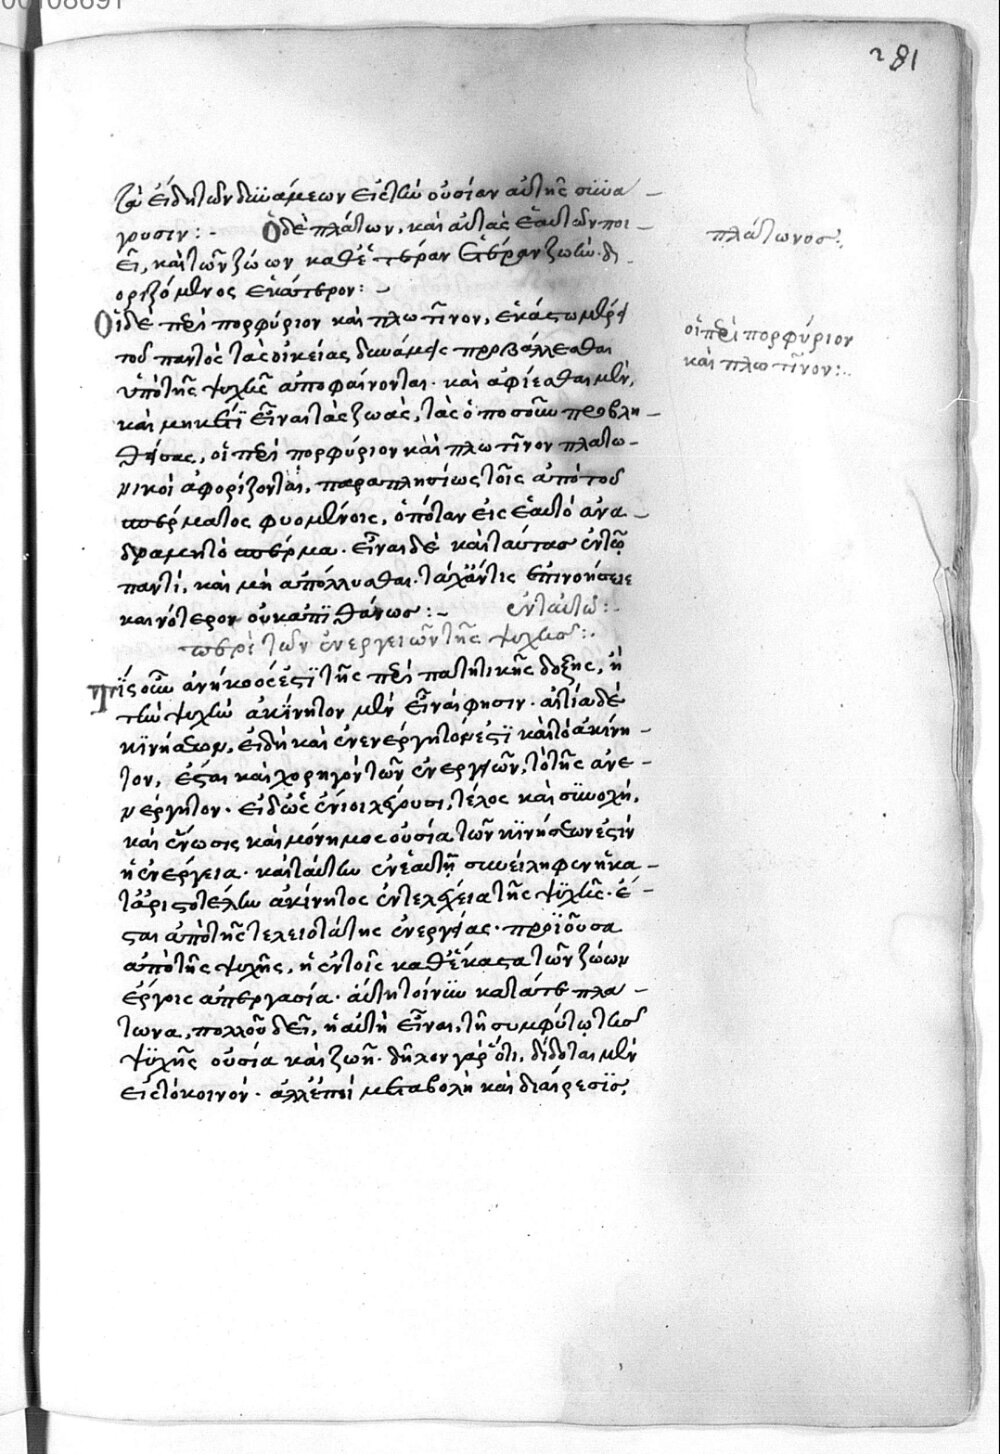 281
τὰ εἴδη τῶν δυνάμεων εἰς τὴν οὐσίαν αὐτῆς συνα
γουσιν:- Ὁ δὲ πλάτων, καὶ αὐτὰς ἑαυτῶν ποι
εῖ, καὶ τῶν ζώων καθ' ἑτέραν ἑτέραν ζωὴν δι
οριζόμενος ἑκάτερον:-
πλάτωνος:
Οἱ δὲ περὶ πορφύριον καὶ πλωτῖνον, ἑκάστω μέρει
τοῦ παντὸς τὰς οἰκείας δυνάμεις προβάλλεσθαι
ὑπὸ τῆς ψυχῆς ἀποφαίνονται· καὶ ἀφίεσθαι μὲν,
καὶ μηκέτι εἶναι τὰς ζωὰς, τὰς ὁποσοῦν προβλη
θείσας, οἱ περὶ πορφύριον καὶ πλωτῖνον πλατω
νικοὶ ἀφορίζονται, παραπλησίως τοῖς ἀπὸ τοῦ
σπέρματος φυομένοις, ὁπόταν εἰς ἑαυτὸ ἀνα
δράμη τὸ σπέρμα· εἶναι δὲ καὶ ταύτας ἐν τῶ
παντί, καὶ μὴ ἀπόλλυσθαι· τάχ' ἄν τις ἐπινοήσειε
καινότερον οὐκ ἀπιθάνως:- ἐν ταυτῶ:-
οἱ περὶ πορφύριον
καὶ πλωτῖνον:-
περὶ τῶν ἐνεργειῶν τῆς ψυχῆς:-
Τίς οὖν ἀνήκοός ἐστι τῆς περιπατητικῆς δόξης, ἣ
τὴν ψυχὴν ἀκίνητον μὲν εἶναί φησιν· αἰτίαν δὲ
κινήσεων, εἰ δὴ καὶ ἀνενέργητόν ἐστι καὶ τὸ ἀκίνη
τον, ἔσται καὶ χορηγὸν τῶν ἐνεργειῶν, τὸ τῆς ἀνε
νέργητον· εἰ δ' ὡς ἔνιοι λέγουσι, τέλος καὶ συνοχή,
καὶ ἕνωσις καὶ μόνιμος οὐσία τῶν κινήσεών ἐστιν
ἡ ἐνέργεια· καὶ ταύτην ἐν ἑαυτῆ συνείληφεν ἡ κα
τ' ἀριστοτέλην ἀκίνητος ἐντελέχεια τῆς ψυχῆς· ἔ
σται ἀπὸ τῆς τελειοτάτης ἐνεργείας· προϊοῦσα
ἀπὸ τῆς ψυχῆς, ἡ ἐν τοῖς καθ' ἕκαστα τῶν ζώων
ἔργοις ἀπεργασία· αὕτη τοίνυν κατά τε πλά
τωνα, πολλοῦ δεῖ, ἡ αὐτὴ εἶναι, τῆ συμφύτω τῆς
ψυχῆς οὐσία καὶ ζωῆ· δῆλον γὰρ ὅτι, δίδοται μὲν
εἰς τὸ κοινόν· ἀλλ' ἐπεὶ μεταβολὴ καὶ διαίρεσις,